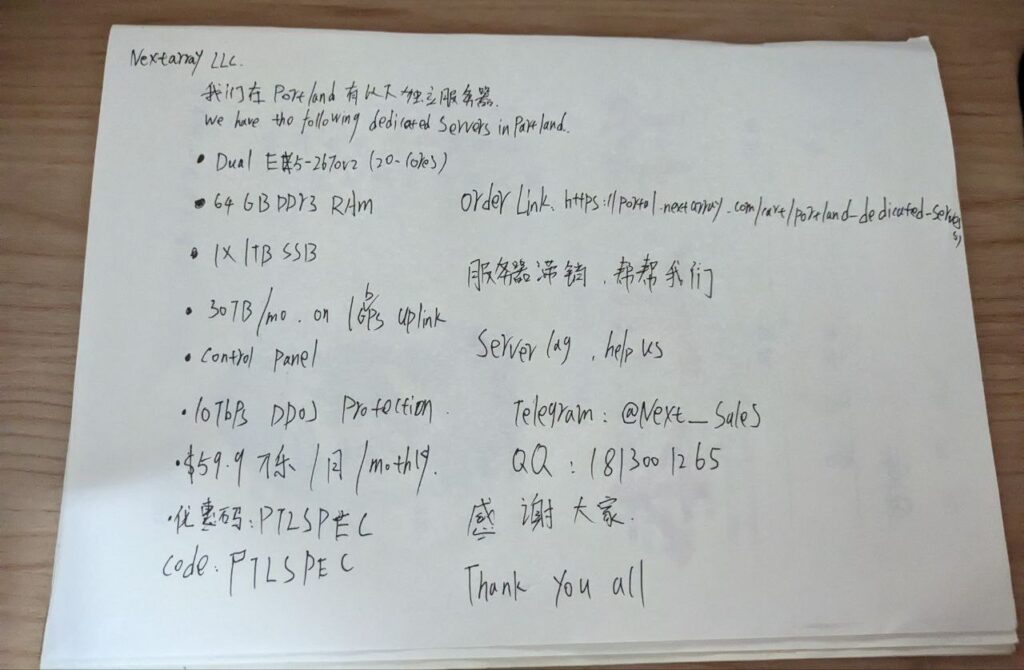 Nextarray LLC.
我们在 Portland 有以下独立服务器.
We have the following dedicated servers in Portland.
• Dual E5-2670v2 (20-cores)
• 64 GB DDR3 RAM
• 1X 1TB SSB
• 30TB/mo. on 1Gbps uplink
• control panel
• 10Tbps DDoS Protection.
• $59.9 /月 /mothly.
• 优惠码: PTLSPEC
code: PTLSPEC
Order Link: https://portal.nextarray.com/cart/portland-dedicated-servers/
服务器滞销，帮帮我们
Server lag, help us
Telegram: @Next_Sales
QQ: 1813001265
感谢大家.
Thank you all